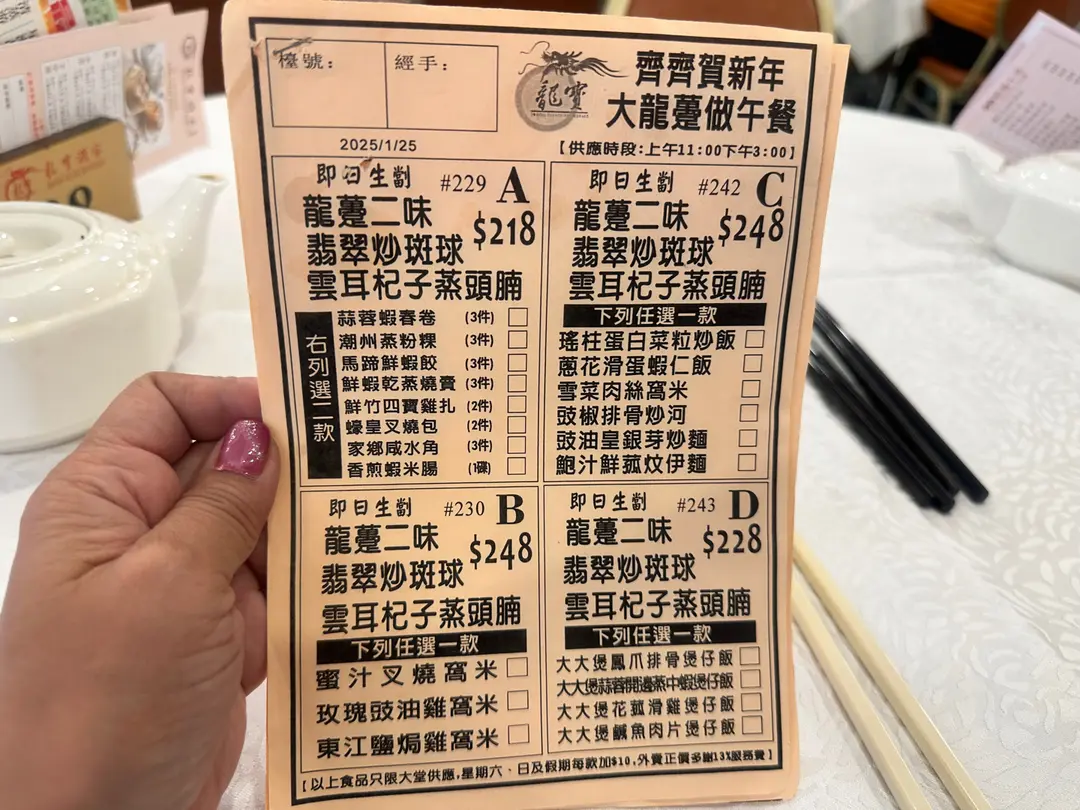 檯號：
經手：
龍寶
齊齊賀新年
大龍躉做午餐
2025/1/25
【供應時段:上午11:00下午3:00】
即日生劏 #229 A
龍躉二味
$218
翡翠炒斑球
雲耳杞子蒸頭腩
右列選二款
蒜蓉蝦春卷 (3件)
潮州蒸粉粿 (3件)
馬蹄鮮蝦餃 (3件)
鮮蝦乾蒸燒賣 (3件)
鮮竹四寶雞扎 (2件)
蠔皇叉燒包 (2件)
家鄉咸水角 (3件)
香煎蝦米腸 (1碟)
即日生劏 #242 C
龍躉二味
$248
翡翠炒斑球
雲耳杞子蒸頭腩
下列任選一款
瑤柱蛋白菜粒炒飯
蔥花滑蛋蝦仁飯
雪菜肉絲窩米
豉椒排骨炒河
豉油皇銀芽炒麵
鮑汁鮮菰炆伊麵
即日生劏 #230 B
龍躉二味
$248
翡翠炒斑球
雲耳杞子蒸頭腩
下列任選一款
蜜汁叉燒窩米
玫瑰豉油雞窩米
東江鹽焗雞窩米
即日生劏 #243 D
龍躉二味
$228
翡翠炒斑球
雲耳杞子蒸頭腩
下列任選一款
大大煲鳳爪排骨煲仔飯
大大煲蒜蓉開邊蒸中蝦煲仔飯
大大煲花菰滑雞煲仔飯
大大煲鹹魚肉片煲仔飯
【以上食品只限大堂供應,星期六、日及假期每款加$10,外賣正價多謝13%服務費】